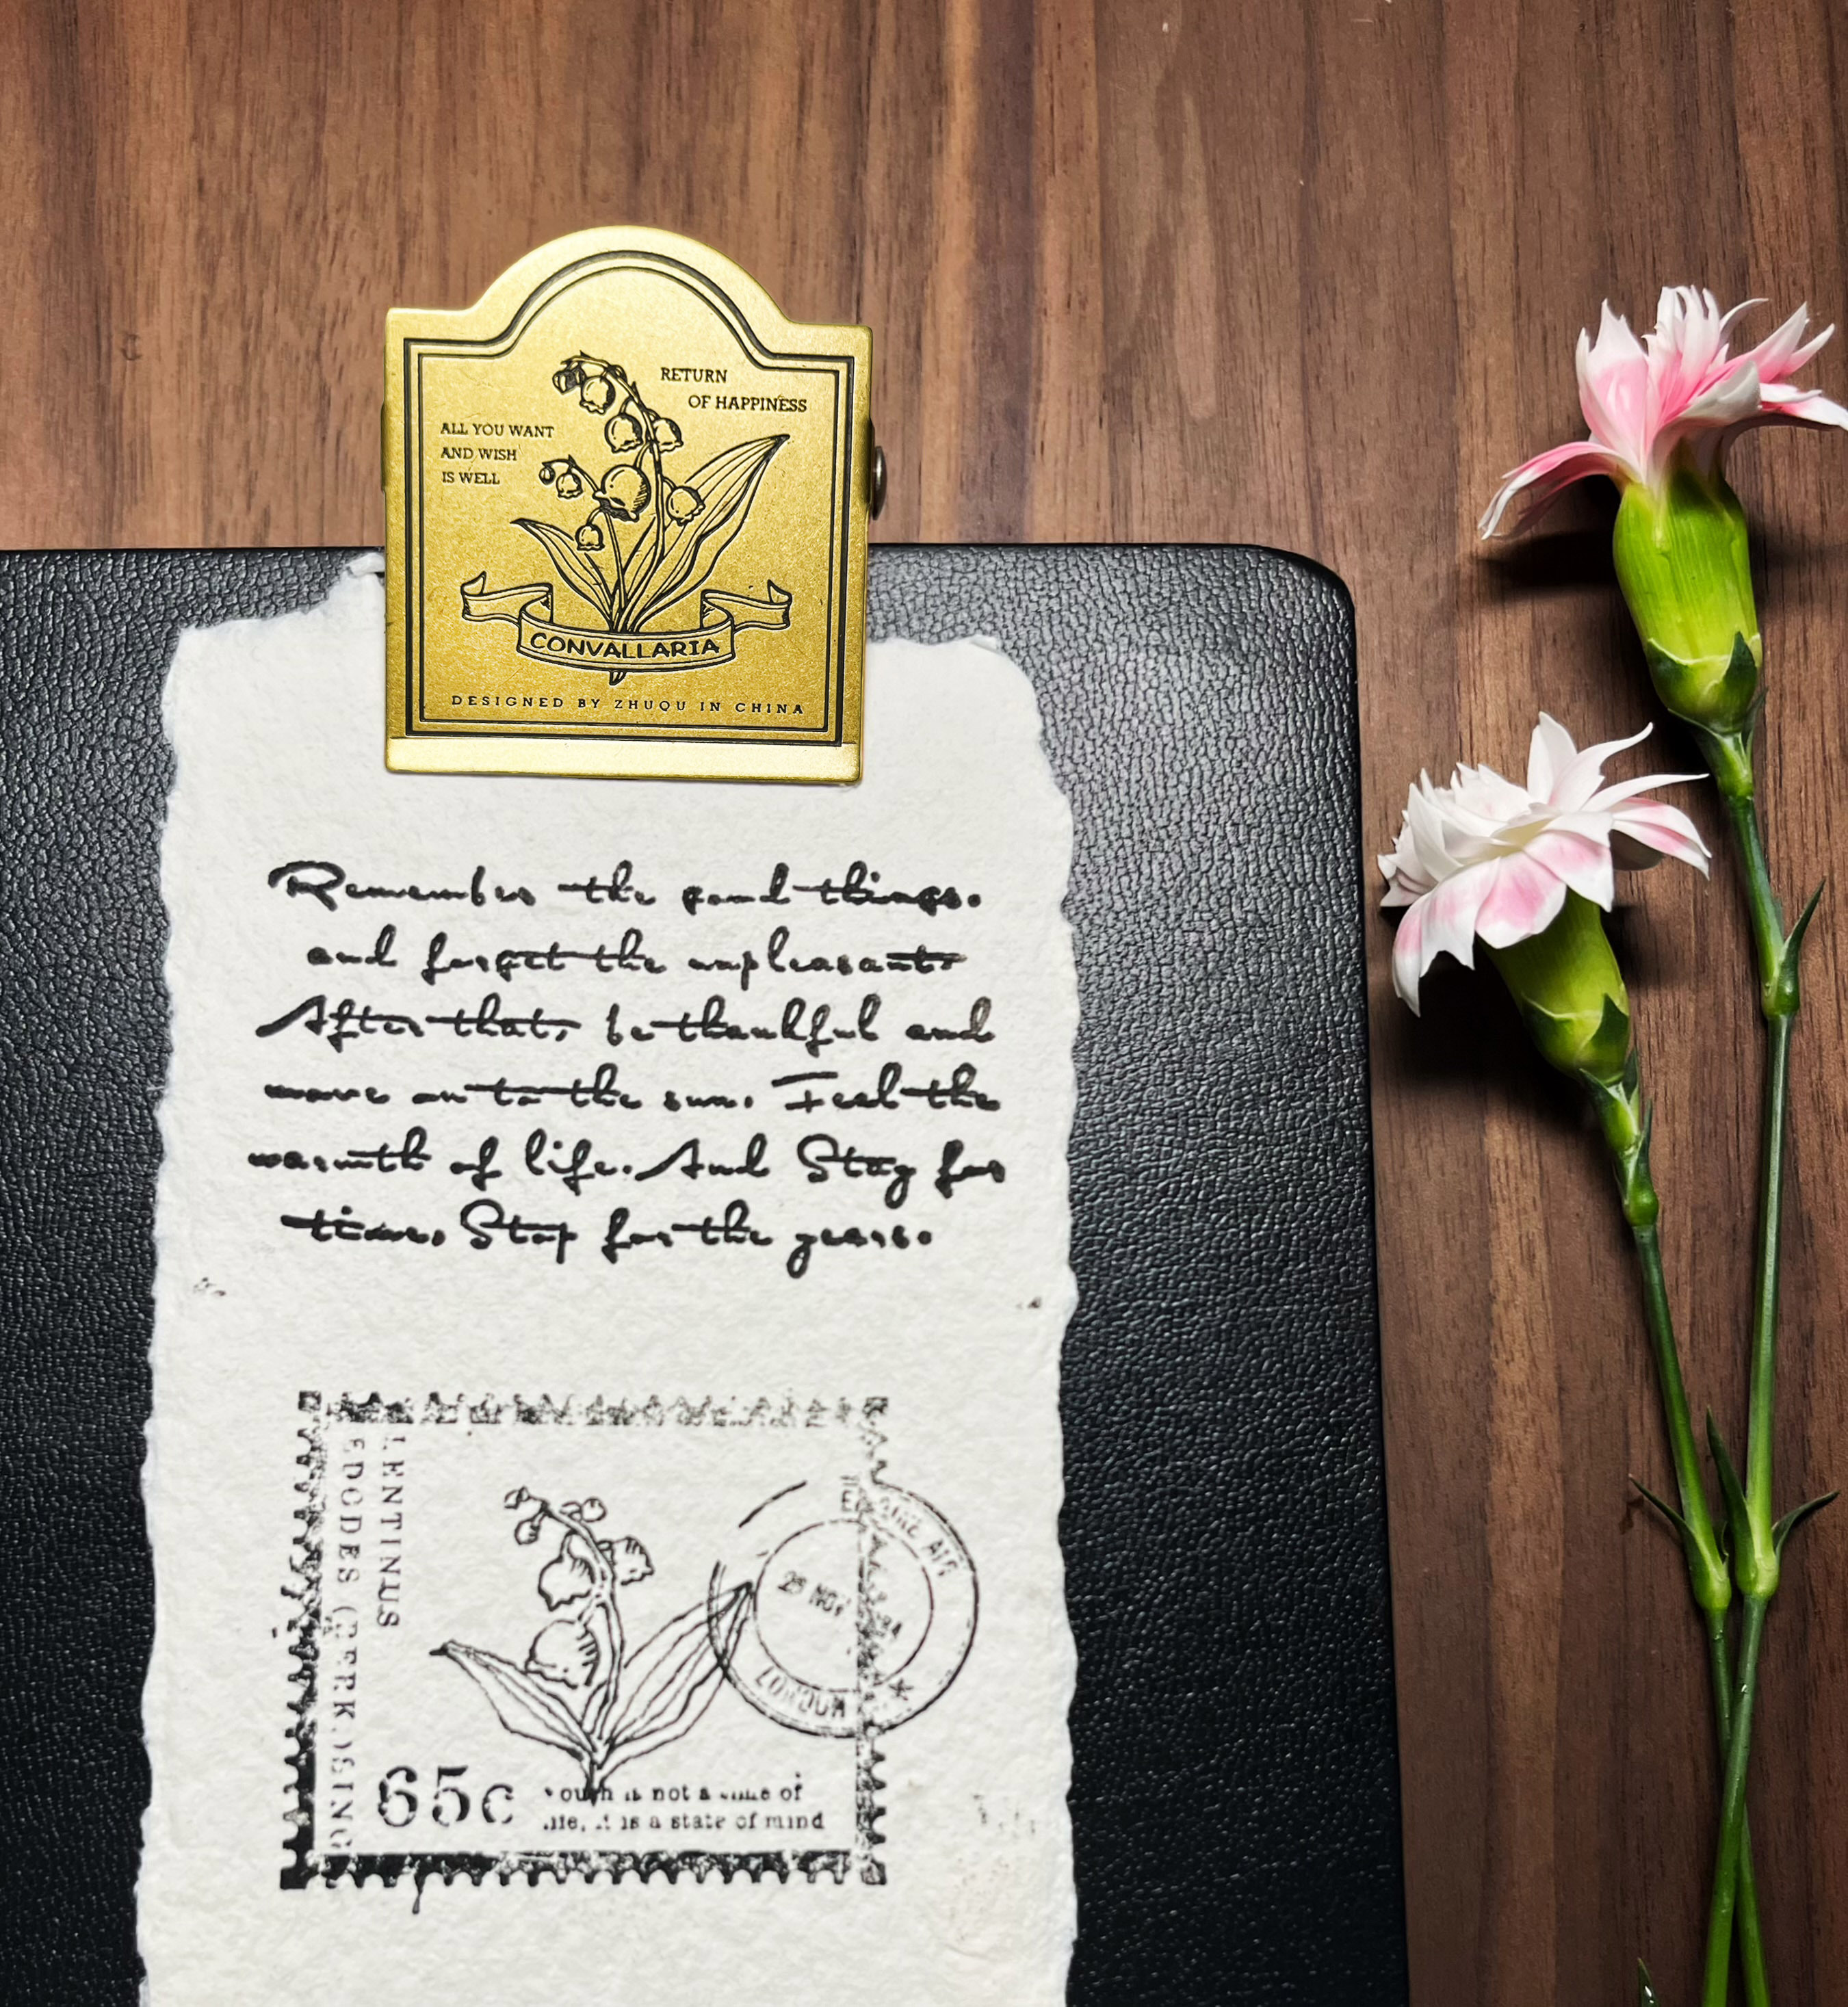 RETURN
OF HAPPINESS
ALL YOU WANT
AND WISH
IS WELL
CONVALLARIA
DESIGNED BY ZHUQU IN CHINA
Remember the good things.
and forget the unpleasant.
After that, be thankful and
move on to the sun. Feel the
warmth of life. And Stay for
time. Stop for the years.
LENTINUS
EDODES
65c
is not a of
it is a state of mind
AIR
LONDON